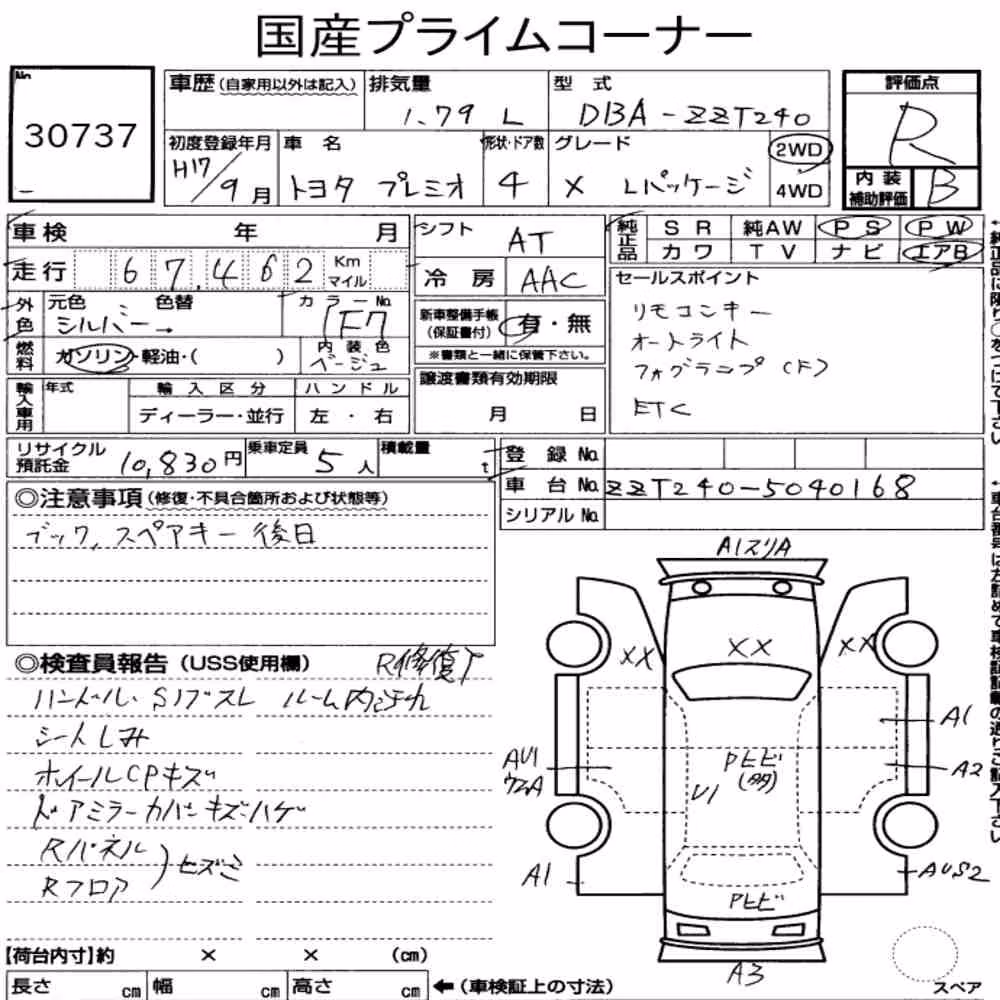 国産プライムコーナー
No.
30737
車歴(自家用以外は記入)
排気量
1.79 L
型式
DBA-ZZT240
評価点
R
初度登録年月
H17/9月
車名
トヨタ プレミオ
形状・ドア数
4
グレード
X Lパッケージ
2WD
4WD
内装補助評価
B
車検 年 月
走行 67,462 Km マイル
外色
元色 色替
シルバー→
カラーNo.
1F7
燃料
ガソリン・軽油・( )
内装色
ベージュ
輸入車用
年式
輸入区分
ディーラー・並行
ハンドル
左・右
シフト
AT
冷房
AAC
新車整備手帳(保証書付)
有・無
※書類と一緒に保管下さい。
譲渡書類有効期限
月 日
純正品
SR 純AW PS PW
カワ TV ナビ エアB
セールスポイント
リモコンキー
オートライト
フォグランプ(F)
ETC
リサイクル預託金
10,830円
乗車定員
5人
積載量
t
登録No.
車台No. ZZT240-5040168
シリアルNo.
◎注意事項(修復・不具合箇所および状態等)
ブック,スペアキー後日
◎検査員報告(USS使用欄)
ハンドル・Sノブスレ ルーム内汚れ
シートしみ
ホイールCPキズ
ドアミラーカバーキズ・ハゲ
Rパネル
Rフロア
)ヒズミ
A1スリA
XX
XX
XX
A1
A2
AU1
Pヒビ
(多)
U1
A1
AUS2
Pヒビ
A3
スペア
【荷台内寸】約 × × (cm)
長さ cm 幅 cm 高さ cm ←(車検証上の寸法)